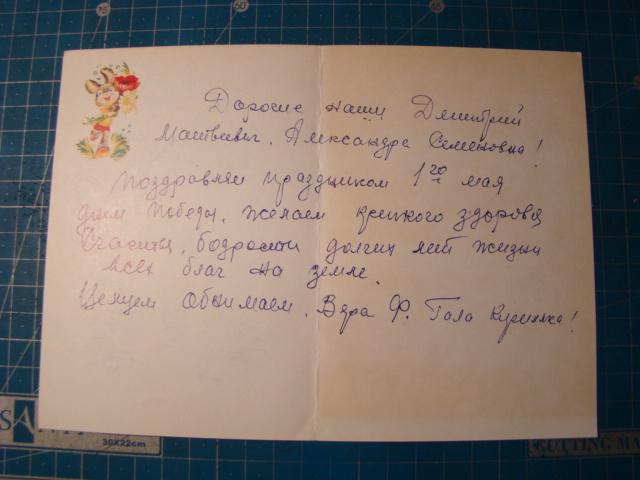 Дорогие наши Дмитрий
Матвеевич, Александра Семеновна!
Поздравляем праздником 1го мая
днем победы, желаем крепкого здоровья
Счастья, бодрости долгих лет жизни
всех благ на земле.
Целуем обнимаем. Вера Ф. Гала
30X22cm
CUTTING MA